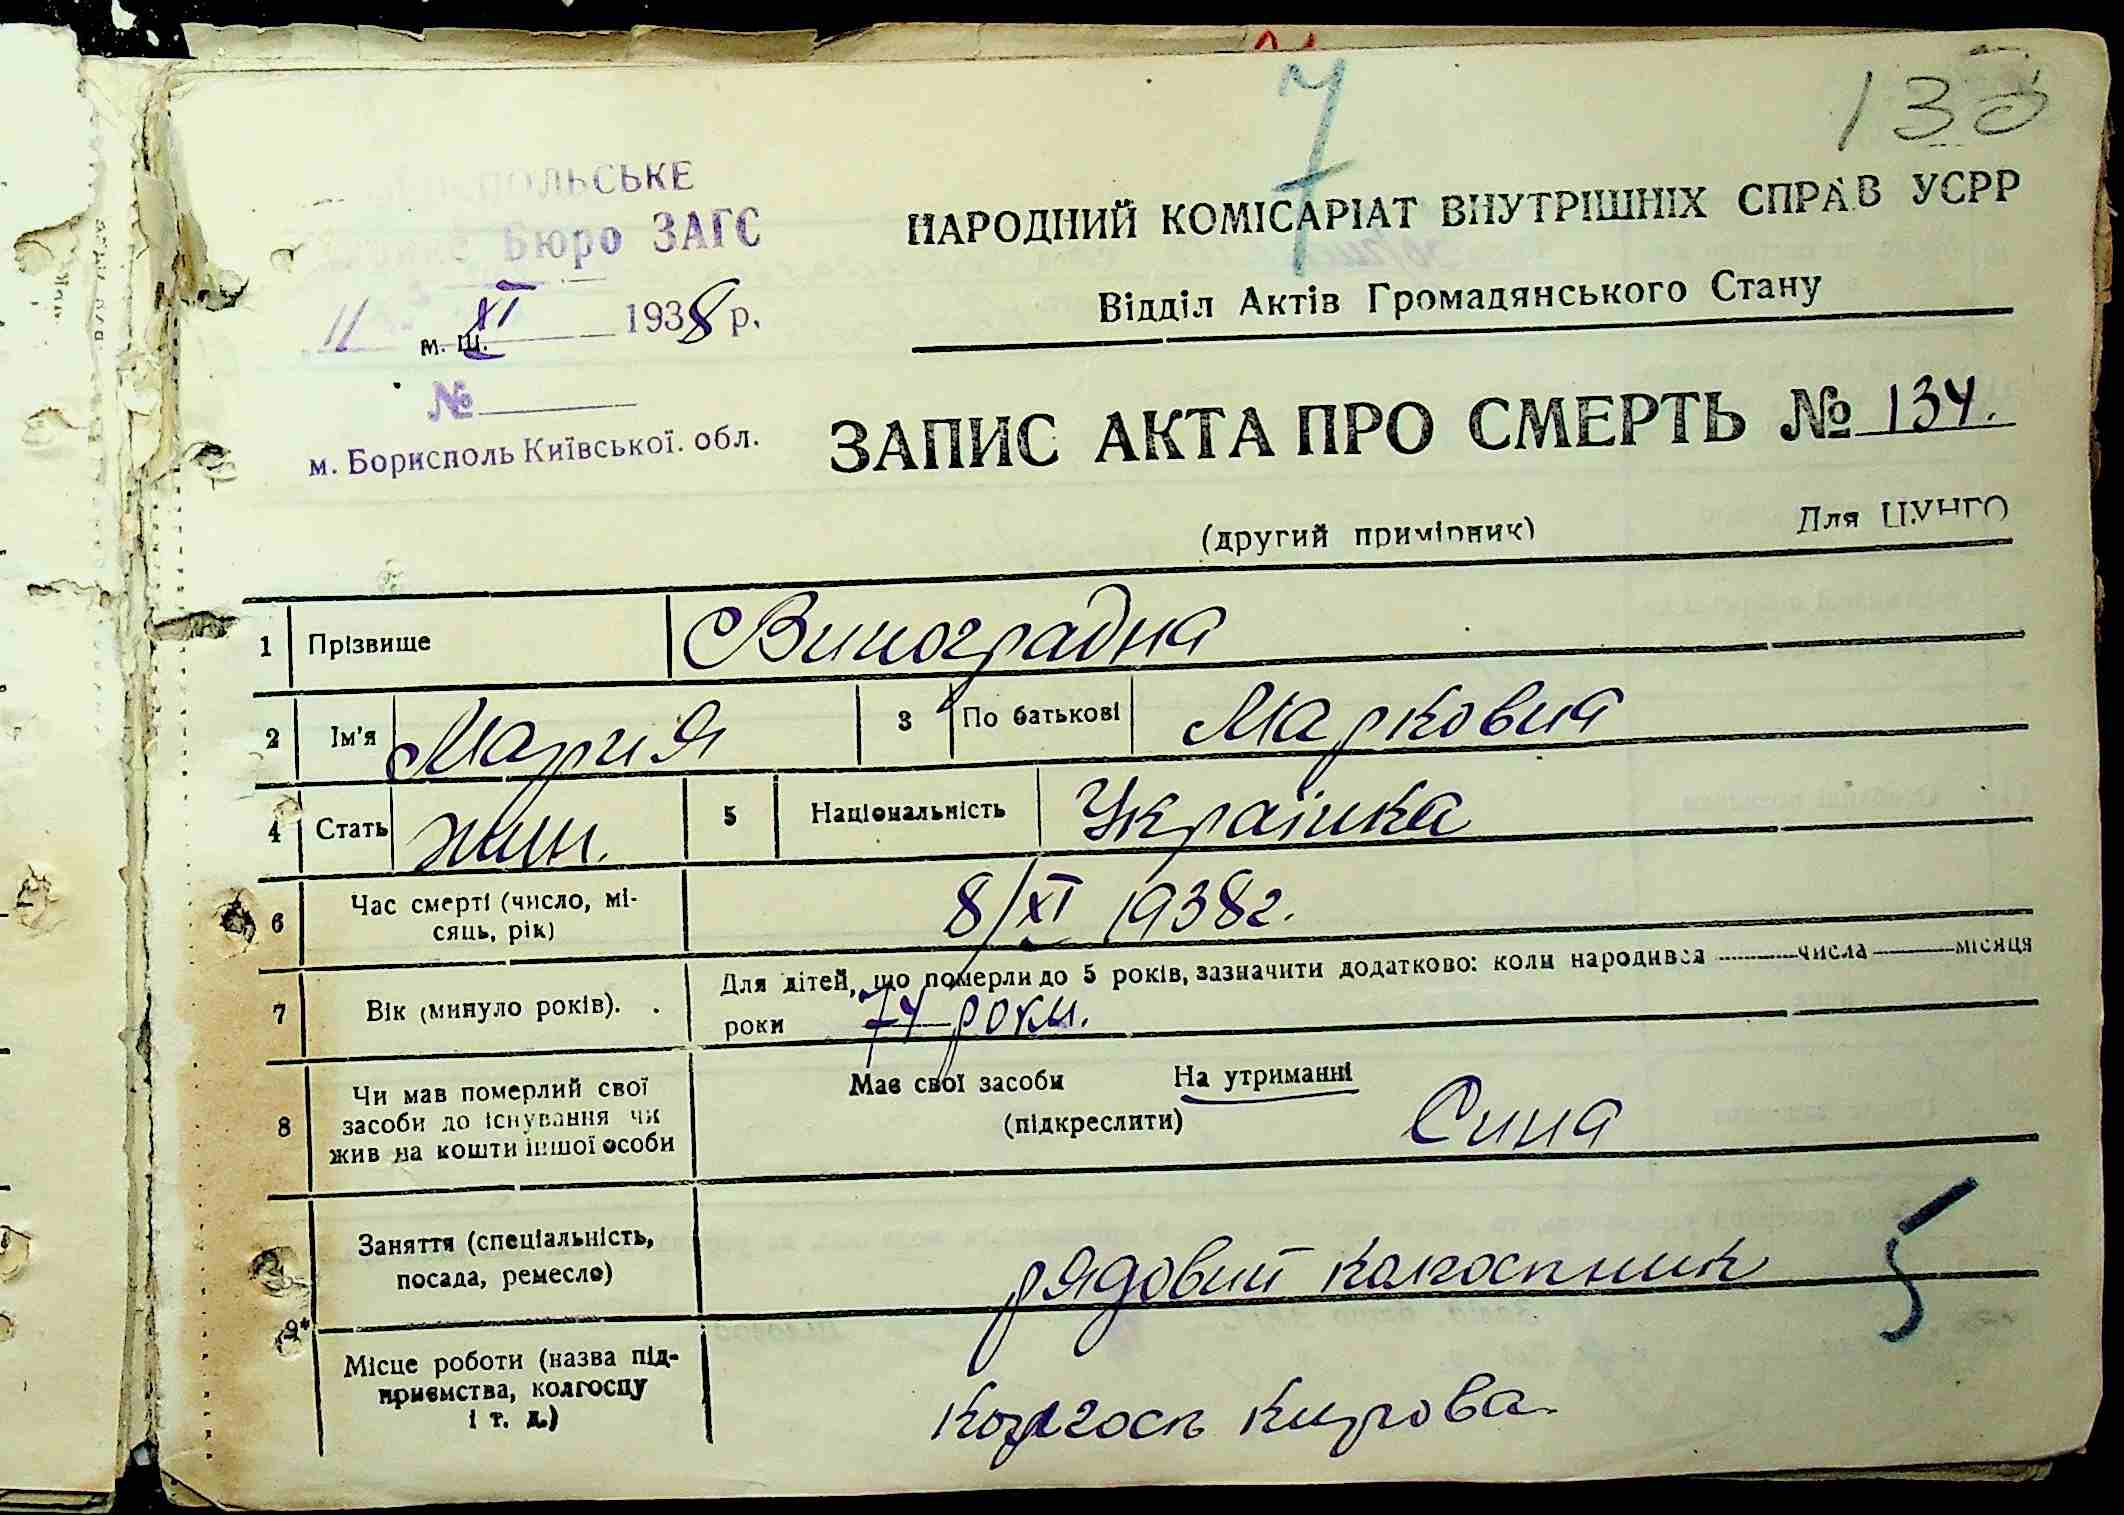 7
13
БЮРО ЗАГС
НАРОДНИЙ КОМІСАРІАТ ВНУТРІШНІХ СПРАВ УСРР
Відділ Актів Громадянського Стану
11 XI 1938 р.
м.
№
м. Бориспoль Київської. обл.
ЗАПИС АКТА ПРО СМЕРТЬ № 134.
(другий примірник)
Для ЦУНГО
1 Прізвище Виноградна
2 Ім'я Мария 3 По батькові Марковна
4 Стать жин. 5 Національність Українка
6 Час смерті (число, мі-
сяць, рік) 8/XI 1938 г.
7 Вік (минуло років). Для дітей, що померли до 5 років, зазначити додатково: коли народився числа місяця
роки 74 роки.
8 Чи мав померлий свої
засоби до існування чи
жив на кошти іншої особи
Має свої засоби На утриманні
(підкреслити) Сина
9 Заняття (спеціальність,
посада, ремесло) рядовий колгоспник
5
Місце роботи (назва під-
приємства, колгоспу
і т. д.) колгосп Кирова